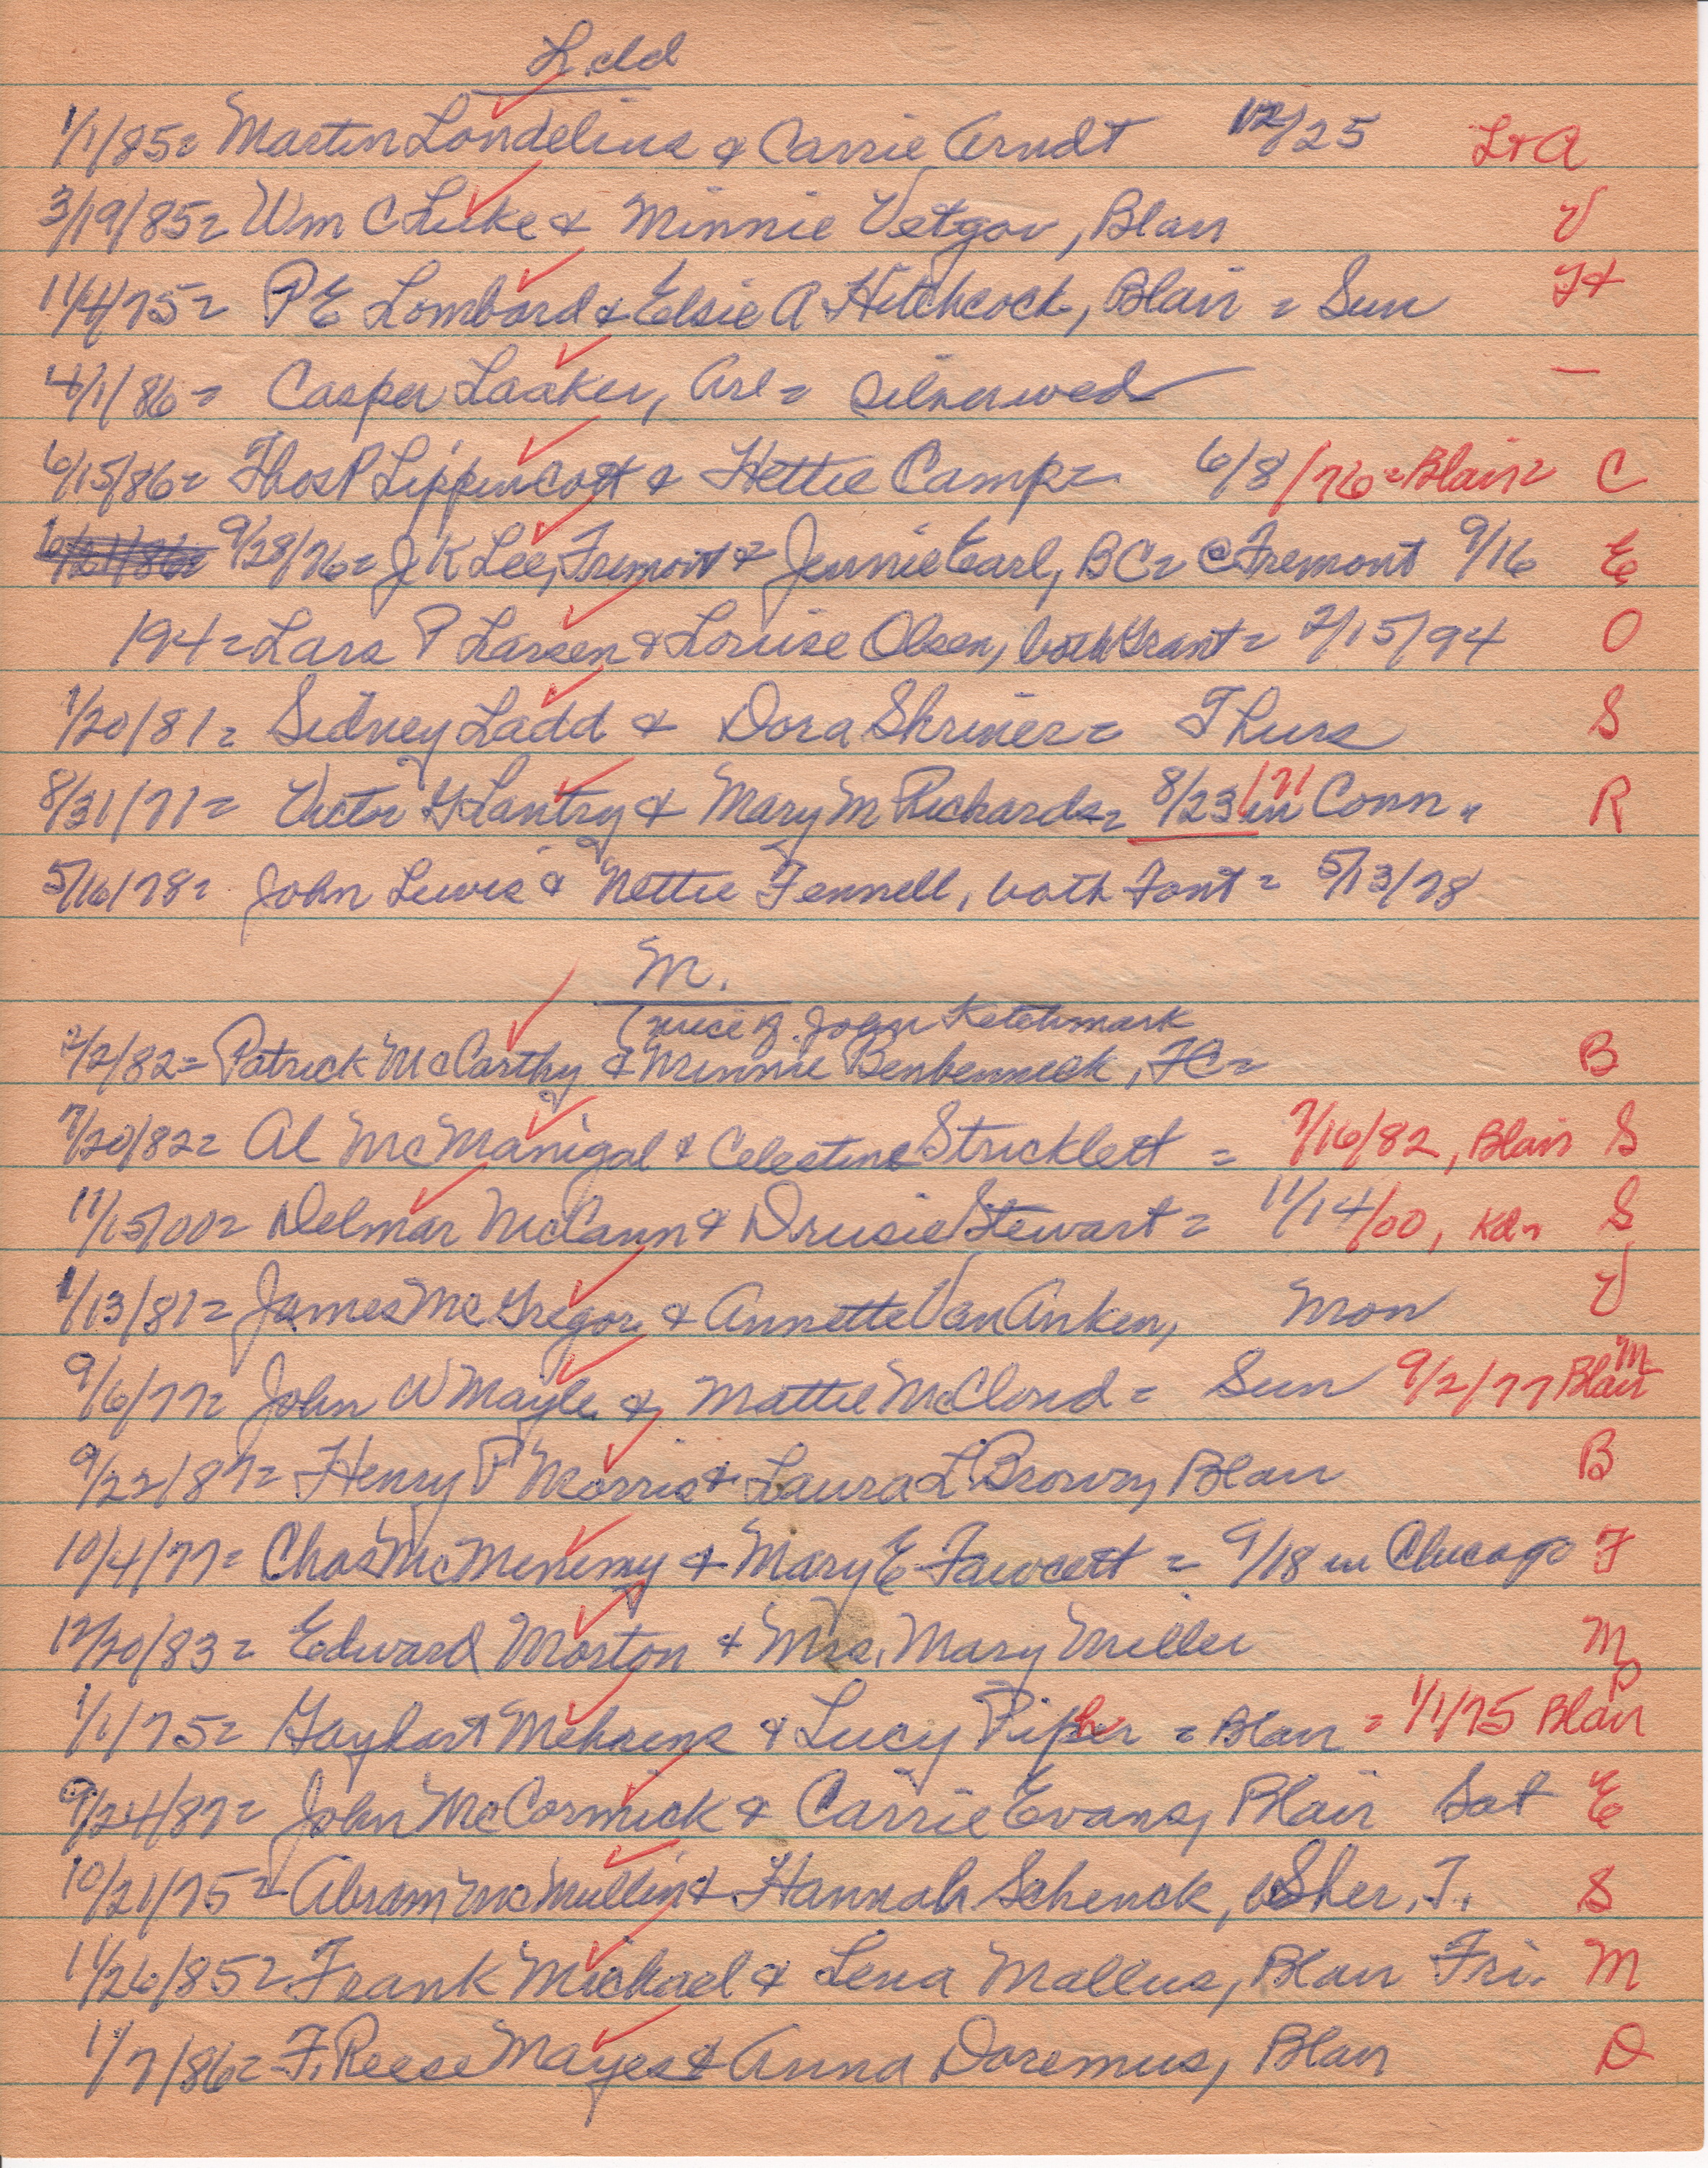 L. add
1/1/85= Martin Londelius & Carrie Arndt 12/25 L+A
3/19/85= Wm C Luke & Minnie Vetgov, Blair V
11/4/75= P E Lombard & Elsie A Hitchcock, Blair = Sun H
4/1/86= Casper Laaker, Arl= silverwed —
6/15/86= Thos P Lippincott & Hettie Camp= 6/8/76=Blair= C
6/24/86= 9/28/76= J K Lee, Fremont & Jennie Earl, BC= @Fremont 9/16 E
194= Lars P Larsen & Louise Olsen, both Grant= 2/15/94 O
1/20/81= Sidney Ladd & Dora Shriner= Thurs S
8/31/71= Victor G Lantry & Mary M Richards= 8/23/71 in Conn. R
5/16/78= John Lewis & Nettie Fennell, both Font= 5/13/78
M.
(niece of John Ketchmark
2/2/82= Patrick McCarthy & Minnie Benbenneck, FC= B
7/20/82= Al McManigal & Celestine Stricklett = 7/16/82, Blair S
11/15/00= Delmar McCann & Drusie Stewart= 11/14/00, Kd= S
1/13/81= James McGregor & Annette Van Anken, Mon V
9/6/77= John W Mayle & Mattie McCloud= Sun 9/2/77 Blair M
9/22/87= Henry P Morris & Laura L Brown, Blair B
10/4/77= Chas McMenemy & Mary E Fawcett = 9/18 in Chicago F
12/20/83= Edward Morton & Mrs. Mary Miller M
1/1/75= Gayhart Mehrens & Lucy Pipher = Blair = 1/1/75 Blair P
9/24/87= John McCormick & Carrie Evans, Blair Sat E
10/21/75= Abram McMullin & Hannah Schenck, Sher. T. S
11/26/85= Frank Michael & Lena Mallus, Blair Fri. M
1/7/86= F. Reese Mayes & Anna Doremus, Blair D